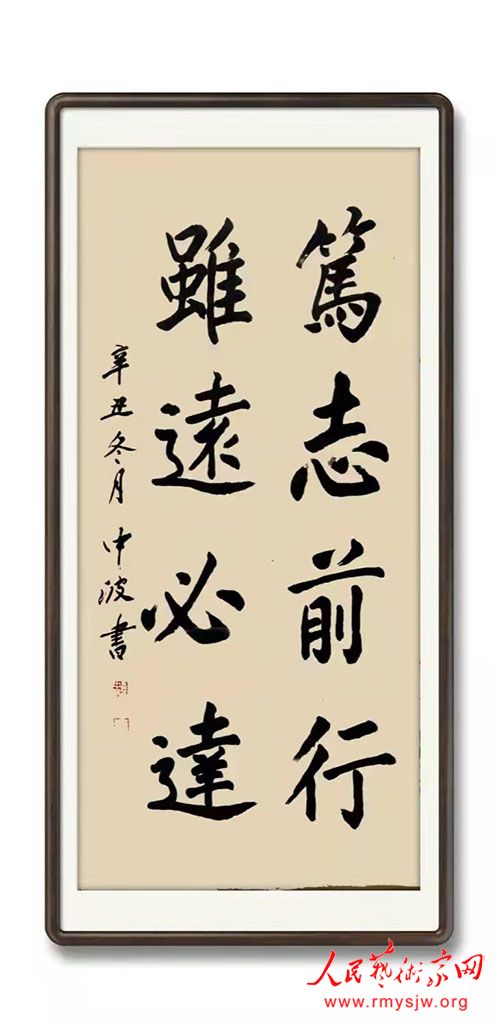 篤志前行
雖遠必達
辛丑冬月中波書
人民藝術家网
www.rmysjw.org